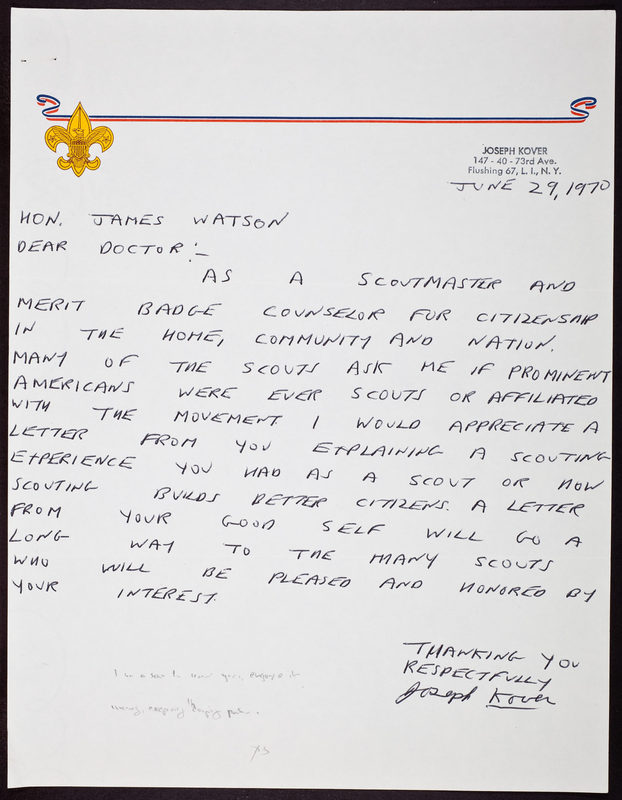 JOSEPH KOVER
147 - 40 - 73rd Ave.
Flushing 67, L. I., N. Y.
JUNE 29, 1970
HON. JAMES WATSON
DEAR DOCTOR:-
AS A SCOUTMASTER AND
MERIT BADGE COUNSELOR FOR CITIZENSHIP
IN THE HOME, COMMUNITY AND NATION.
MANY OF THE SCOUTS ASK ME IF PROMINENT
AMERICANS WERE EVER SCOUTS OR AFFILIATED
WITH THE MOVEMENT. I WOULD APPRECIATE A
LETTER FROM YOU EXPLAINING A SCOUTING
EXPERIENCE YOU HAD AS A SCOUT OR HOW
SCOUTING BUILDS BETTER CITIZENS. A LETTER
FROM YOUR GOOD SELF WILL GO A
LONG WAY TO THE MANY SCOUTS
WHO WILL BE PLEASED AND HONORED BY
YOUR INTEREST.
THANKING YOU
RESPECTFULLY
Joseph Kover